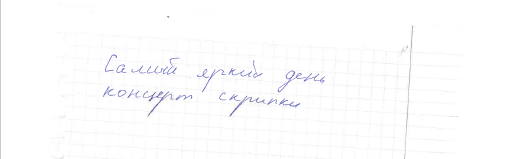 Самый яркий день
концерт скрипки